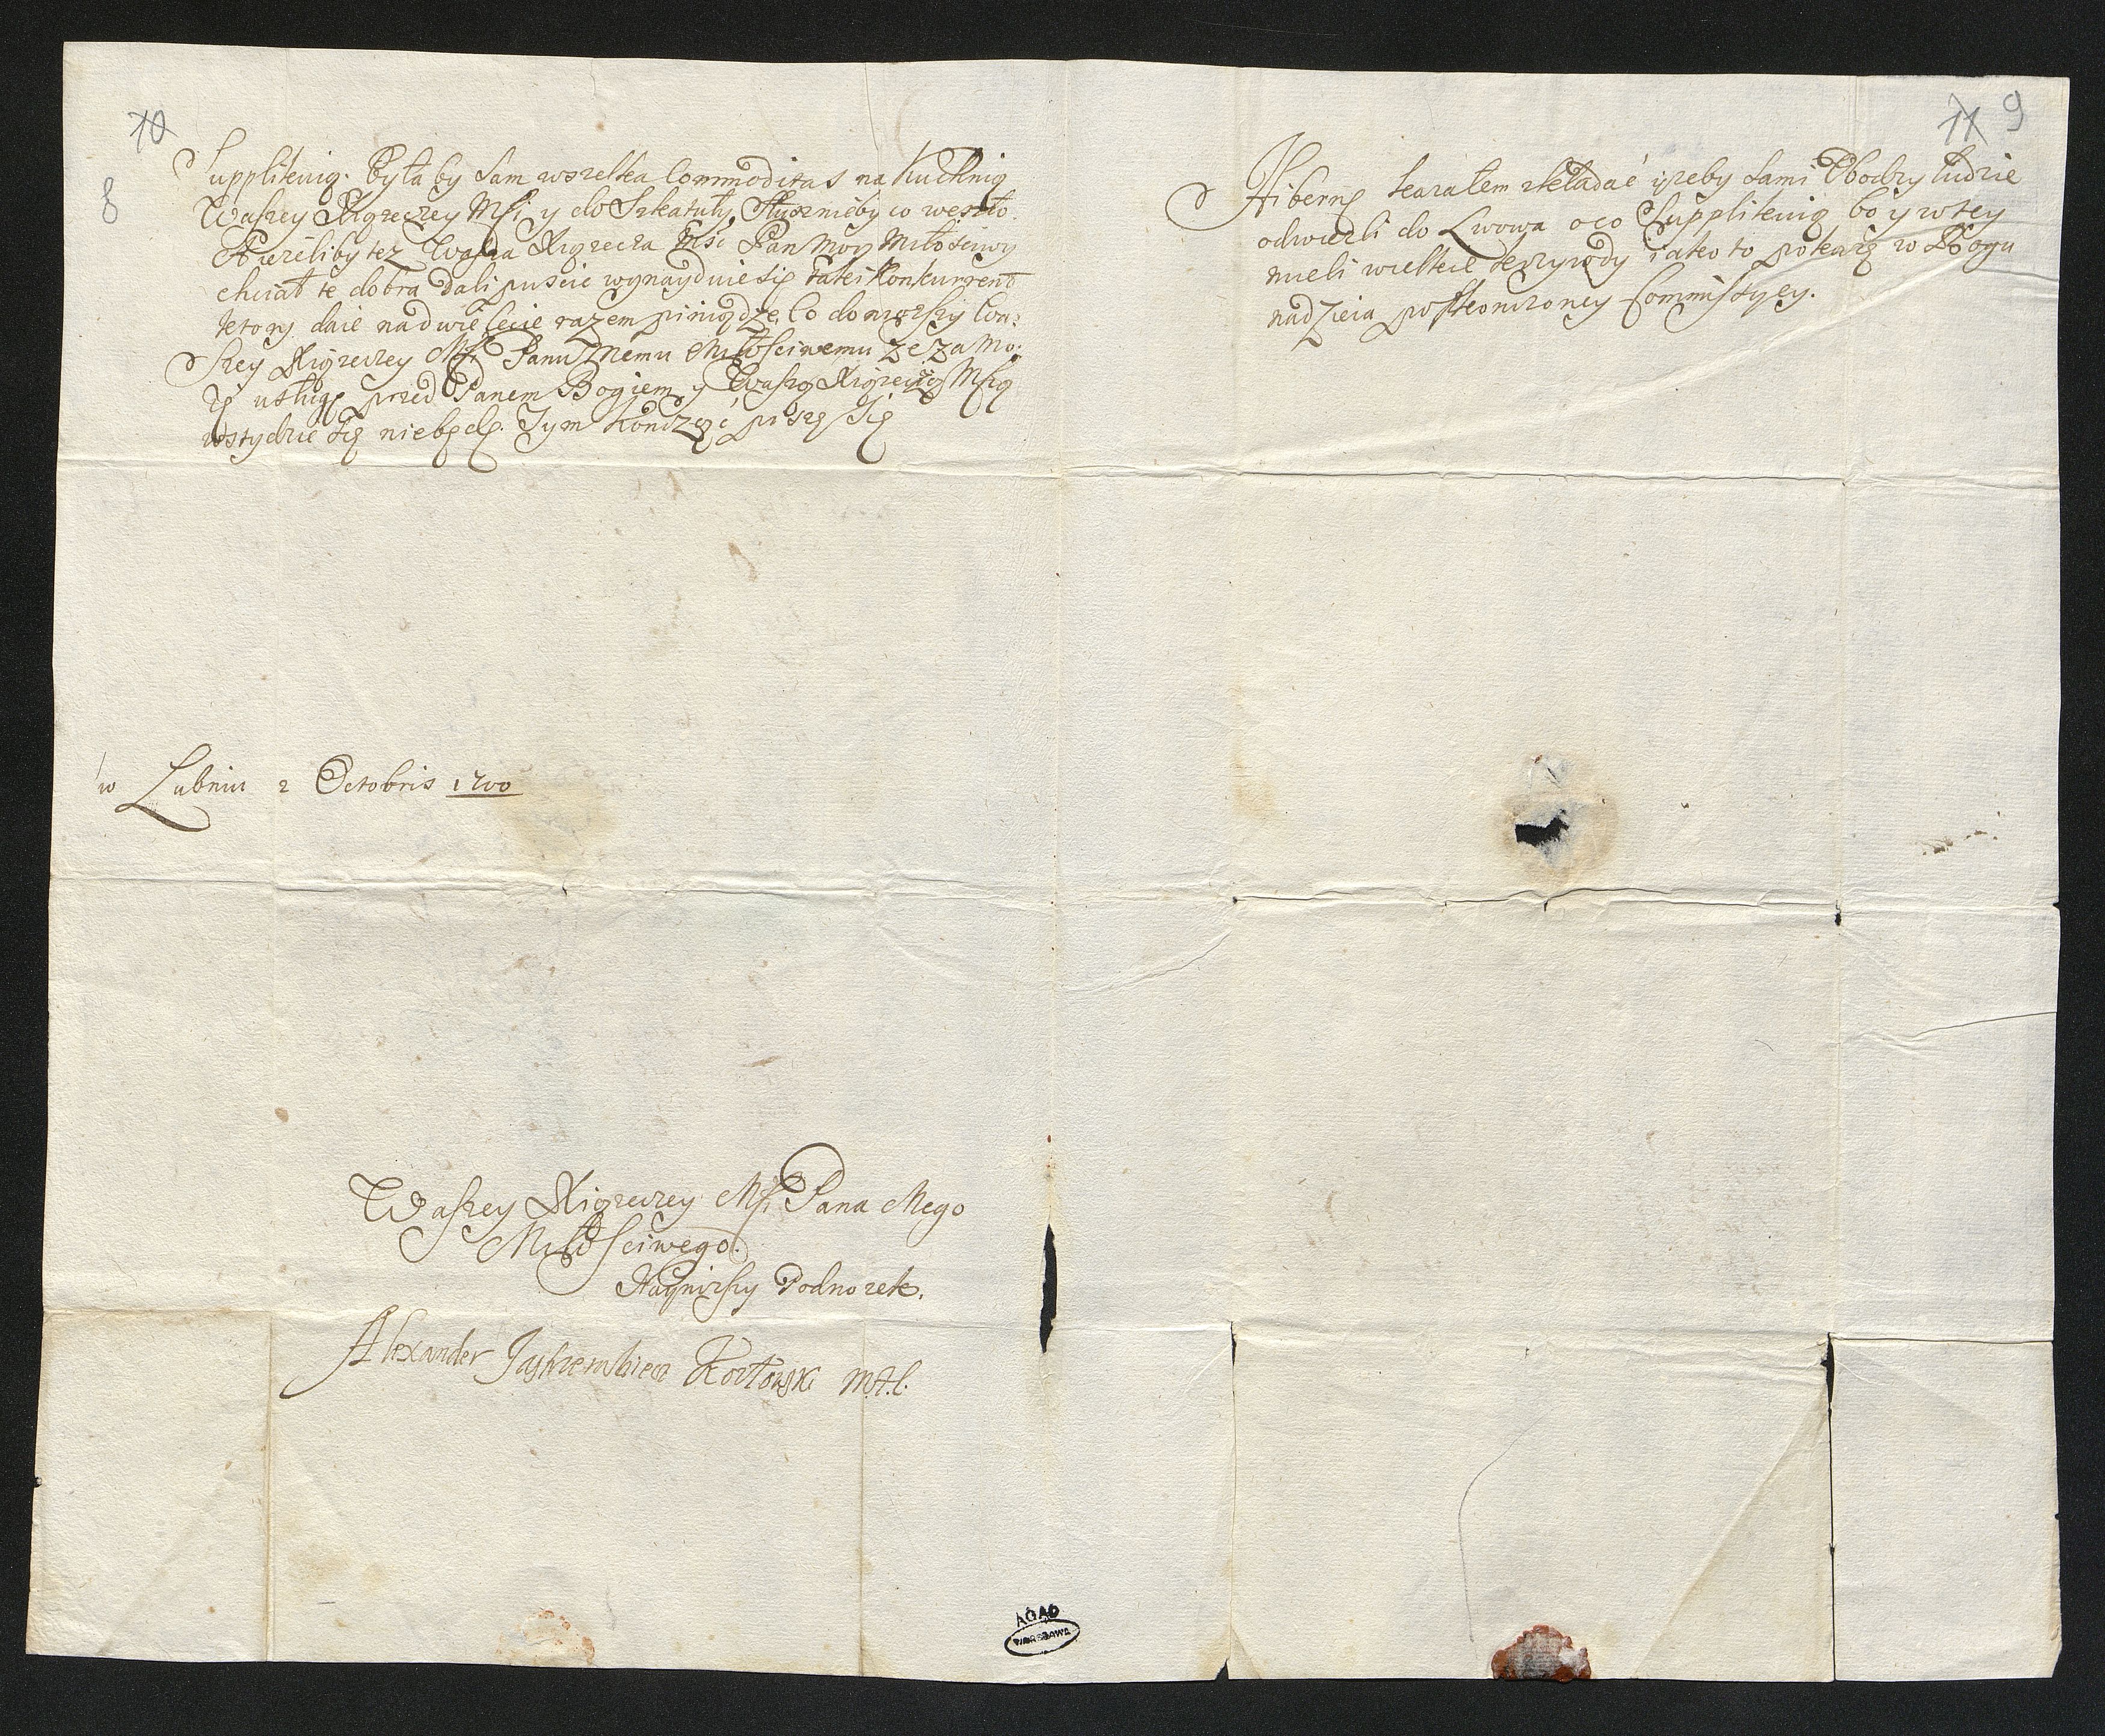 10
8
Supplikuią. Była by Sam wszelka Commoditas na Kuchnią
Waszey Xiązeczey Mśi y do Szkatuły Słusznieby co weszło.
A ieżeliby tez Wasza Xiązecza Mść Pan Moy Miłościwy
chciał te dobra dali puscic wynayduie się taki Konkurrent
ktory daie na dwie lecie razem piniądze, Co donioszy Wa:
szey Xiązeczey Mśi Panu Memu Miłosciwemu ze za Mo:
ię usługę przed Panem Bogiem y Waszą Xiązeczą Mścią
wstydzic się niebędę. Tym Kończąć piszę się
w Lubniu 2 Octobris 1700
Waszey Xiązeczey Mśi Pana Mego
Miłosciwego.
Naynizszy Podnozek.
Alexander Jastrzembiec Kozłowski
11 9
Hibernę kazałem składać izeby sami Obodzy ludzie
odwiezli do Lwowa oco Supplikuią bo y wtey
mieli wielkie krzywdy iako to pokazę w Bogu
nadzieia po skonczoney Commissyey.
AGAD
WARSZAWA